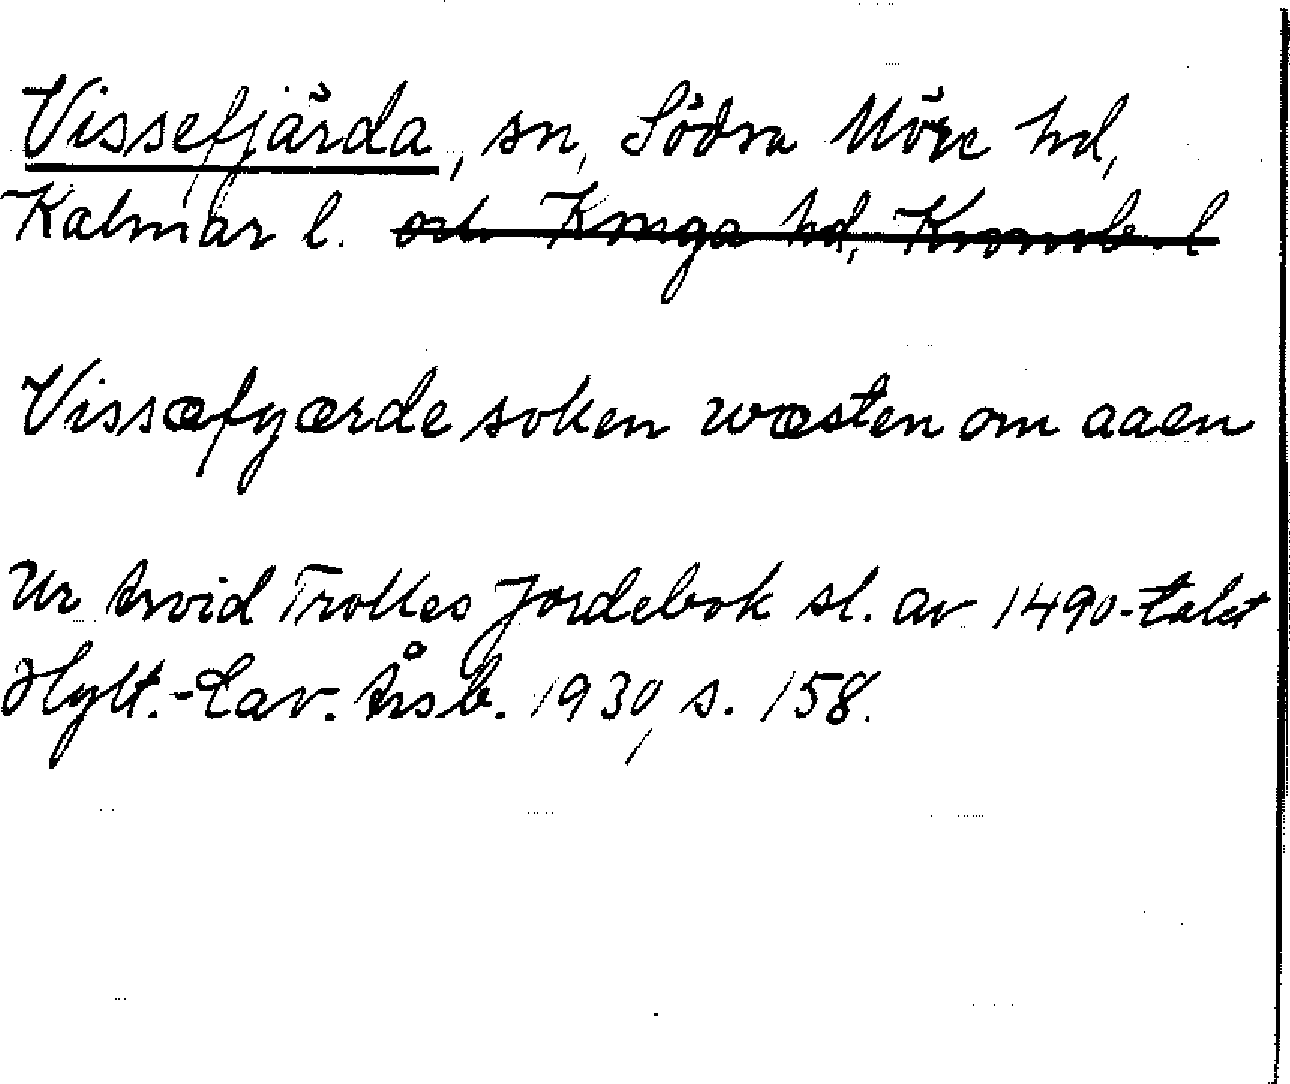 Vissefjärda, sn, Södra Möre hd,
Kalmar l. och Konga hd, Kronob. l
Vissæfyærde soken wæsten om aaen
Ur Arvid Trolles Jordebok sl. av 1490-talet
Hylt.-Cav. Årsb. 1930, s. 158.